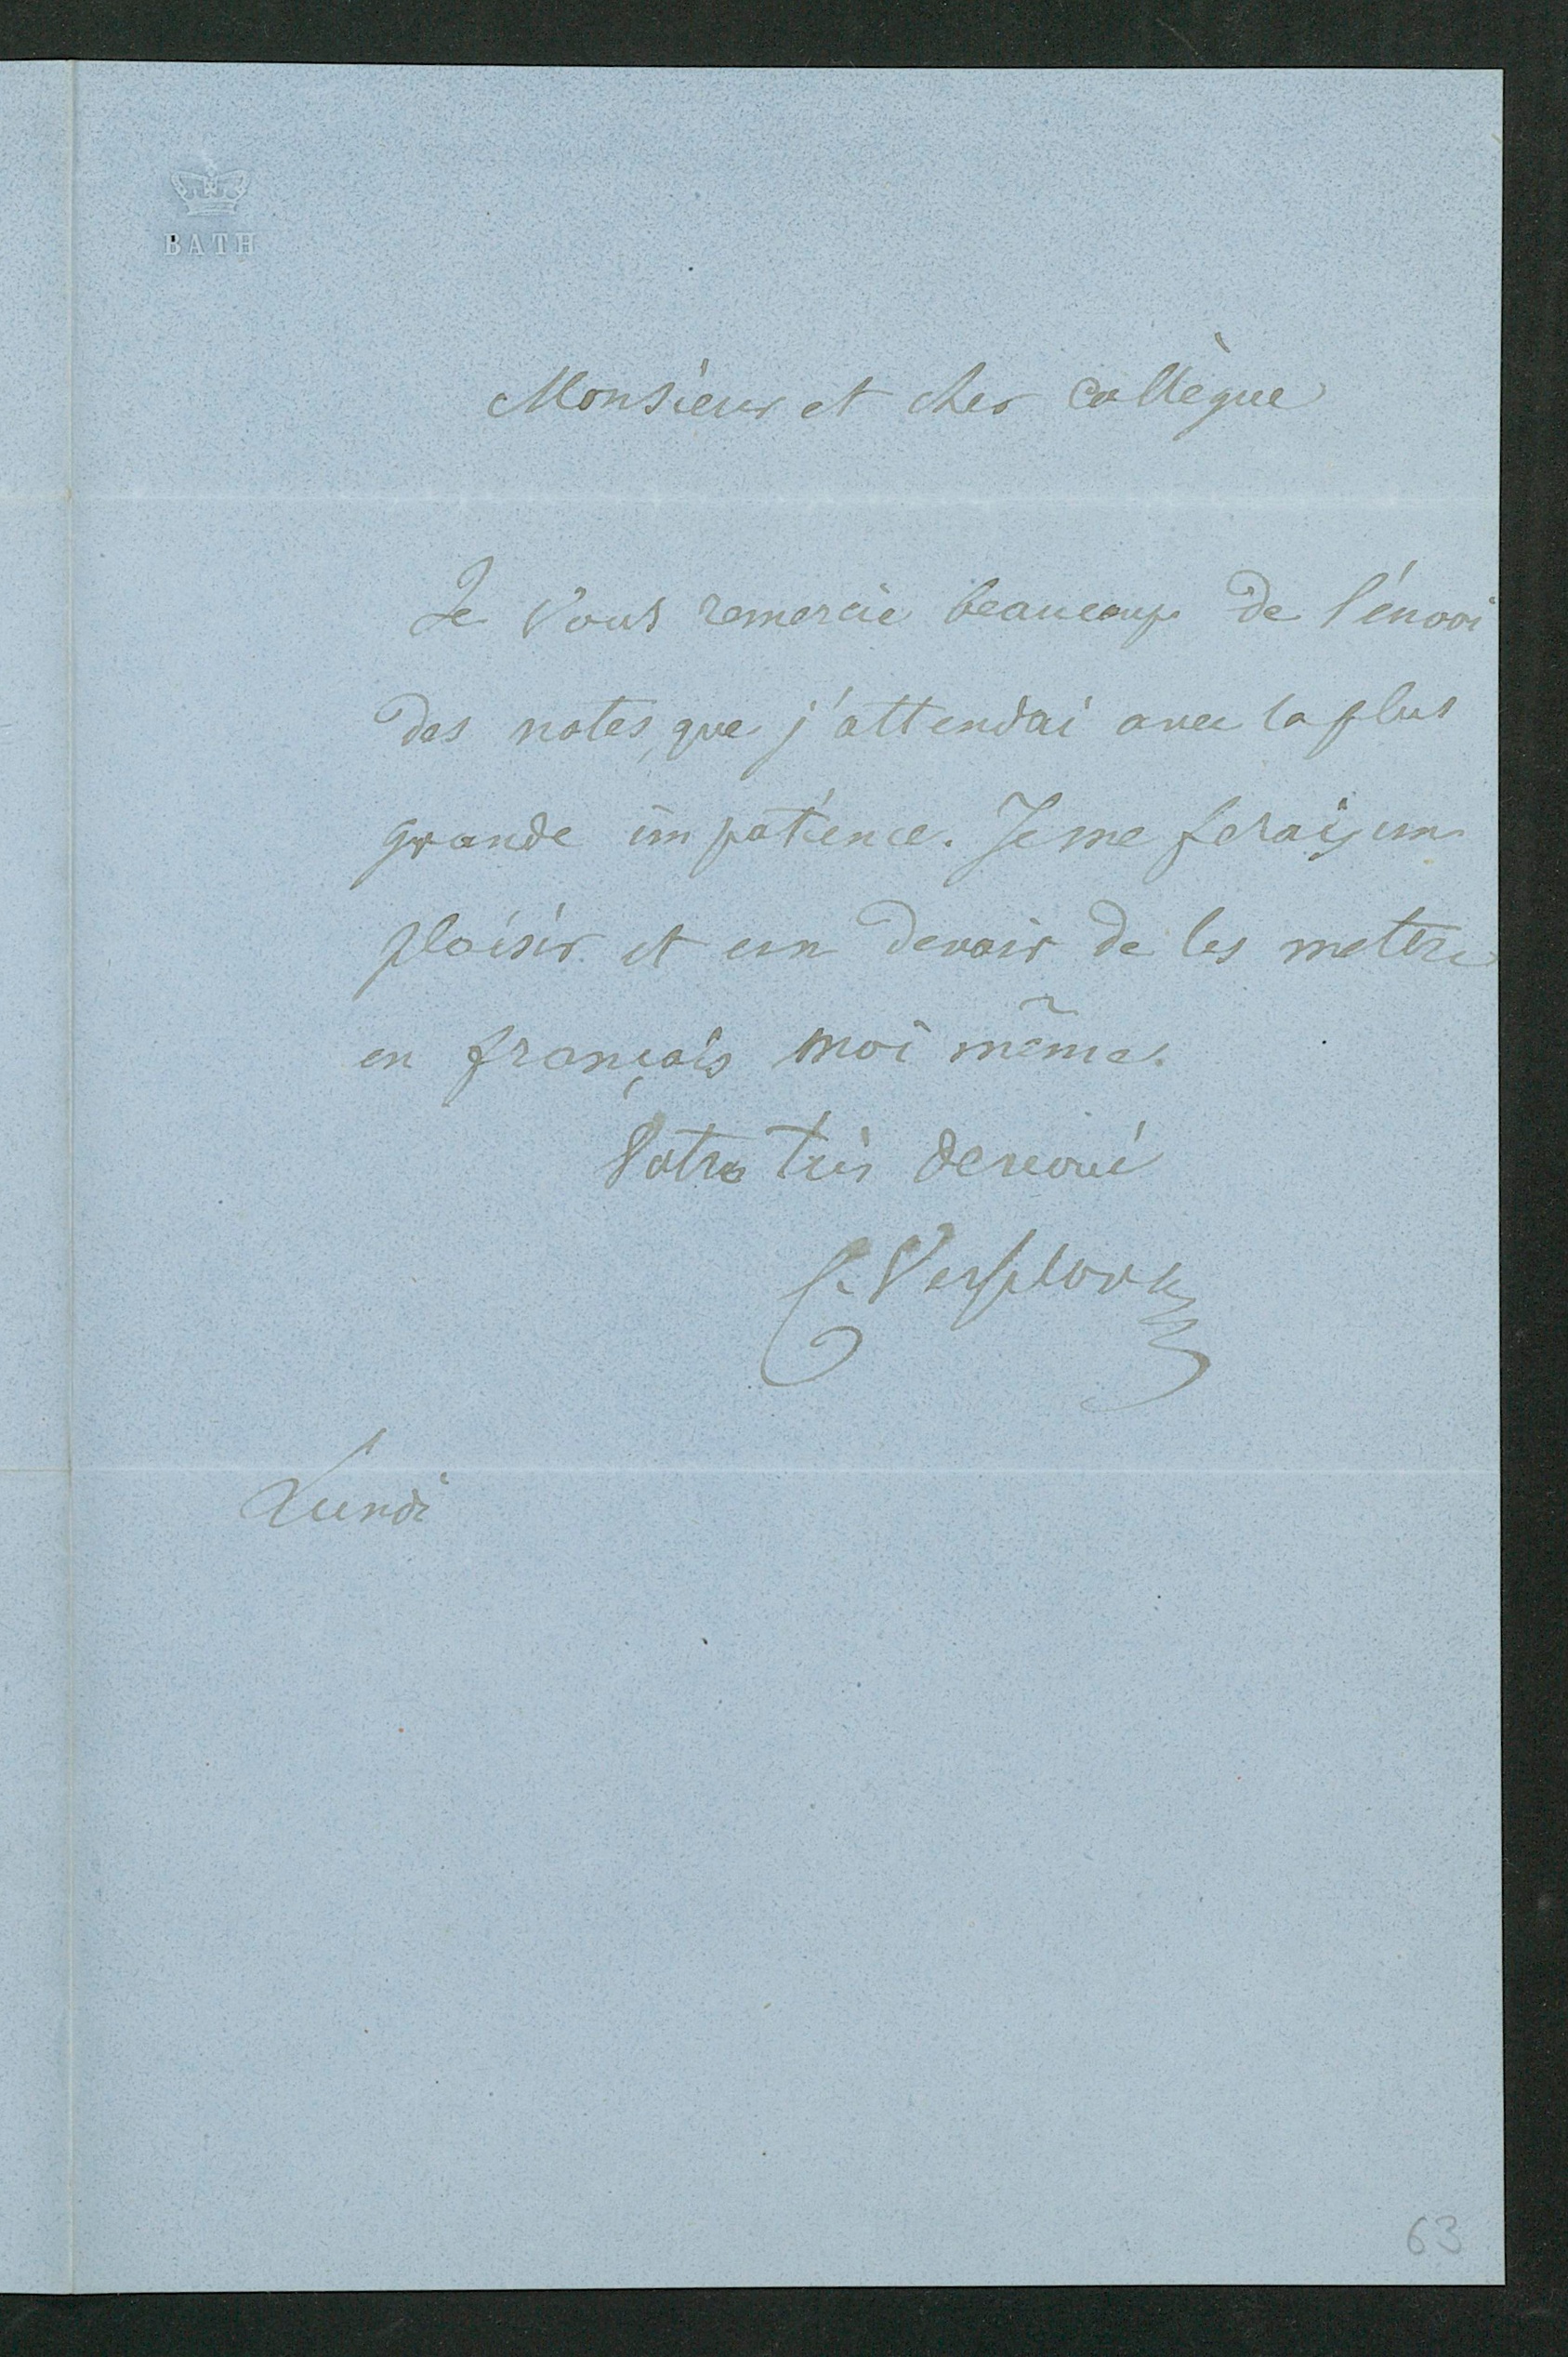 BATH
Monsieur et cher collègue
Je vous remercie beaucoup de l'énvoi
des notes, que j'attendai avec la plus
grande impatience. Je me ferais un
plaisir et un devoir de les mettre
en français moi même.
Votre très devoué
Lundi
63